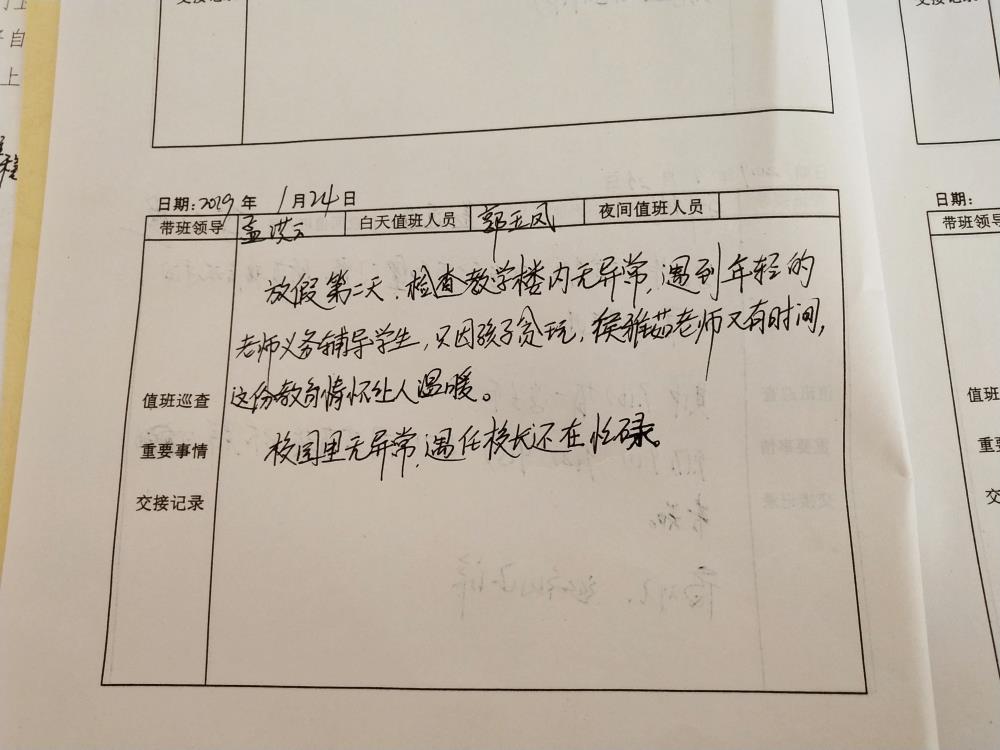 交接记录
交接记录
自
上
日期:2019年 1月24日
日期:
带班领导 孟 白天值班人员 郭玉凤 夜间值班人员
带班领
放假第二天，检查教学楼内无异常，遇到年轻的
老师义务辅导学生，只因孩子贪玩，侯雅茹老师又有时间，
这份教育情怀让人温暖。
校园里无异常，遇任校长还在忙碌。
值班巡查
重要事情
交接记录
值班
重要
交